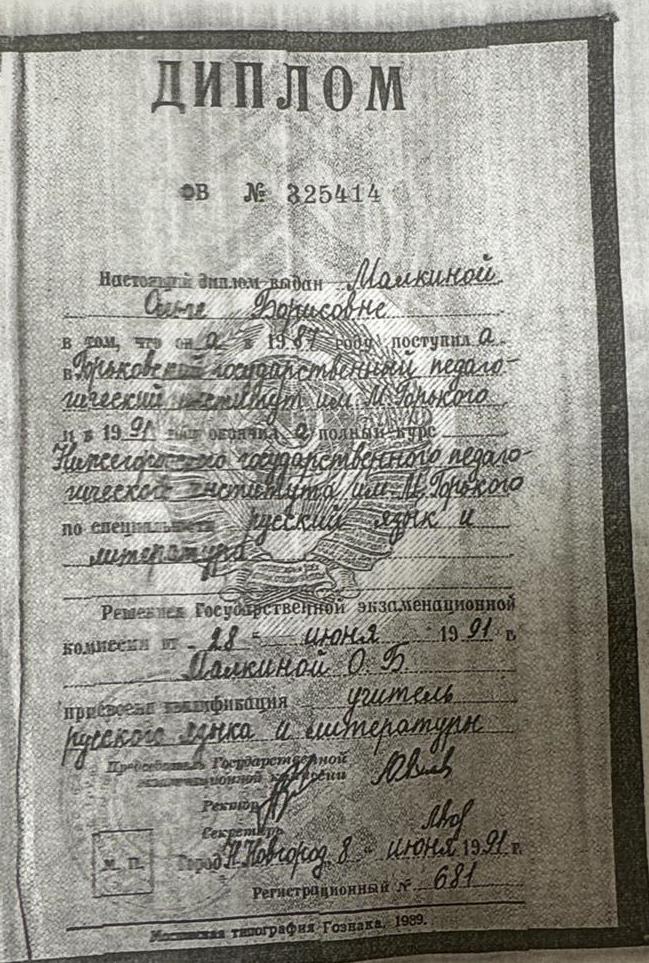 ДИПЛОМ
ФВ № 325414
Настоящий диплом выдан Малкиной
Ольге Борисовне
в том, что он а в 1987 году поступил а
в Горьковский государственный педаго-
гический институт им. М. Горького
и в 1991 году окончил а полный курс
Нижегородского государственного педаго-
гического института им. М. Горького
по специальности русский язык и
литература
Решением Государственной экзаменационной
комиссии от „28“ июня 1991 г.
Малкиной О. Б
присвоена квалификация учитель
русского языка и литературы
Председатель Государственной
экзаменационной комиссии
Ректор
Секретарь
М. П.
Город Н. Новгород, 8 “ июня 1991 г.
Регистрационный № 681
Московская типография Гознака. 1989.